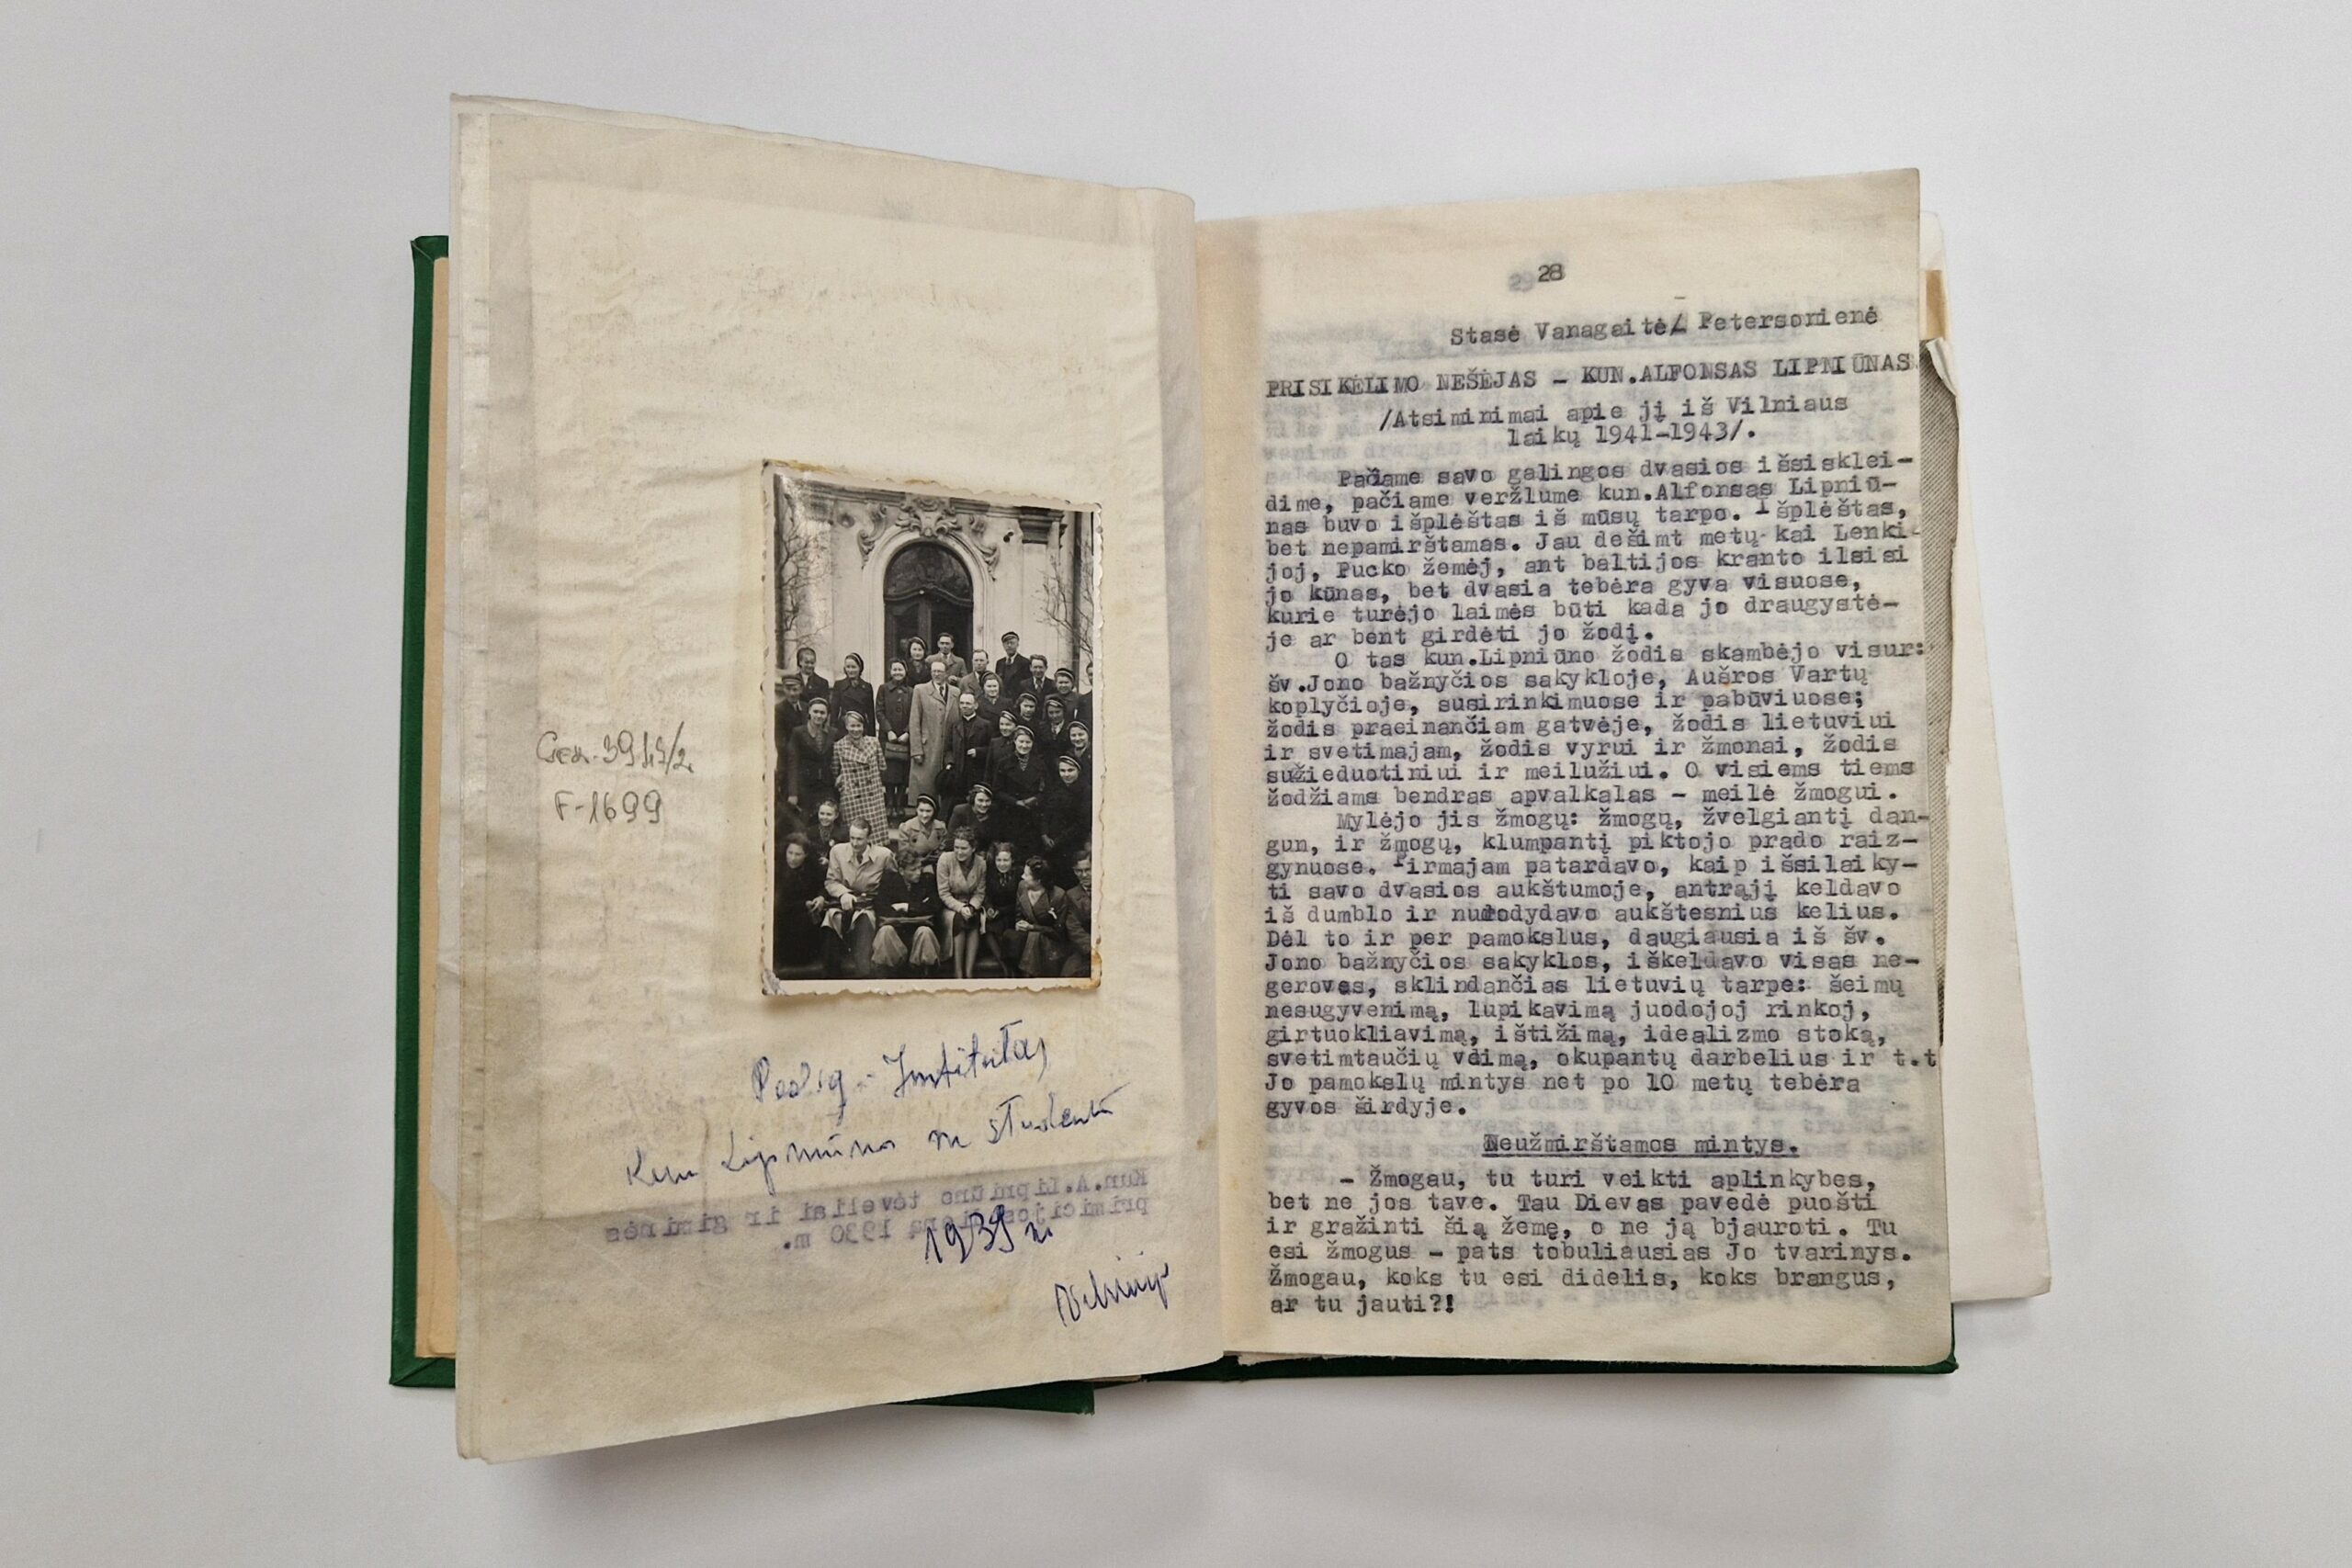 F-1699
Pedag. Institutas
Kun Lipniūnas su studentais
1939 m
Vilniuje
Kun.A.Lipniūno tėveliai ir giminės
primicijos dieną 1930 m.
28
Stasė Vanagaitė/ Petersonienė
PRISIKĖLIMO NEŠĖJAS – KUN.ALFONSAS LIPNIŪNAS
/Atsiminimai apie jį iš Vilniaus
laikų 1941-1943/.
Pačiame savo galingos dvasios išsisklei-
dime, pačiame veržlume kun.Alfonsas Lipniū-
nas buvo išplėštas iš mūsų tarpo. Išplėštas,
bet nepamirštamas. Jau dešimt metų kai Lenki-
joj, Pucko žemėj, ant baltijos kranto ilsisi
jo kūnas, bet dvasia tebėra gyva visuose,
kurie turėjo laimės būti kada jo draugystė-
je ar bent girdėti jo žodį.
O tas kun.Lipniūno žodis skambėjo visur:
šv.Jono bažnyčios sakykloje, Aušros Vartų
koplyčioje, susirinkimuose ir pabūviuose;
žodis praeinančiam gatvėje, žodis lietuviui
ir svetimajam, žodis vyrui ir žmonai, žodis
sužieduotiniui ir meilužiui. O visiems tiems
žodžiams bendras apvalkalas – meilė žmogui.
Mylėjo jis žmogų: žmogų, žvelgiantį dan-
gun, ir žmogų, klumpantį piktojo prado raiz-
gynuose. Pirmajam patardavo, kaip išsilaiky-
ti savo dvasios aukštumoje, antrąjį keldavo
iš dumblo ir nurodydavo aukštesnius kelius.
Dėl to ir per pamokslus, daugiausia iš šv.
Jono bažnyčios sakyklos, iškeldavo visas ne-
geroves, sklindančias lietuvių tarpe: šeimų
nesugyvenimą, lupikavimą juodojoj rinkoj,
girtuokliavimą, ištižimą, idealizmo stoką,
svetimtaučių vdimą, okupantų darbelius ir t.t
Jo pamokslų mintys net po 10 metų tebėra
gyvos širdyje.
Neužmirštamos mintys.
– Žmogau, tu turi veikti aplinkybes,
bet ne jos tave. Tau Dievas pavedė puošti
ir gražinti šią žemę, o ne ją bjauroti. Tu
esi žmogus – pats tobuliausias Jo tvarinys.
Žmogau, koks tu esi didelis, koks brangus,
ar tu jauti?!